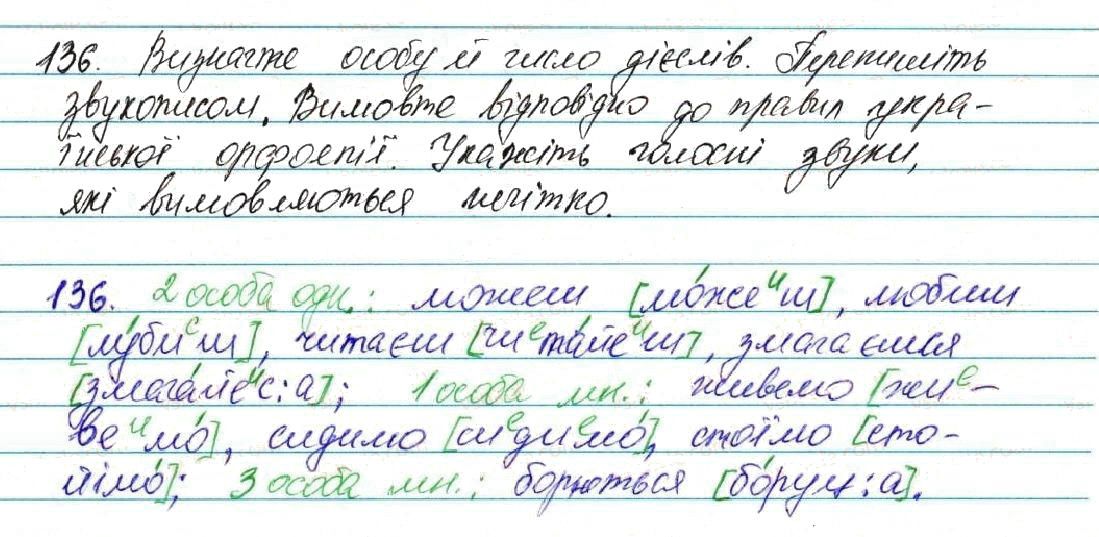 136. Визначте особу й число дієслів. Перепишіть
звукописом. Вимовте відповідно до правил укра-
їнської орфоепії. Укажіть голосні звуки,
які вимовляються нечітко.
136. 2 особа одн.: можеш [мо́жеиш], любиш
[л́убиеш], читаєш [чиета́йеиш], змагаєшся
[змага́йеис:а]; 1 особа мн.: живемо [жие-
веимо́], сидимо [сиедиемо́], стоїмо [сто-
йімо́]; 3 особа мн.: борються [бо́руц:а].